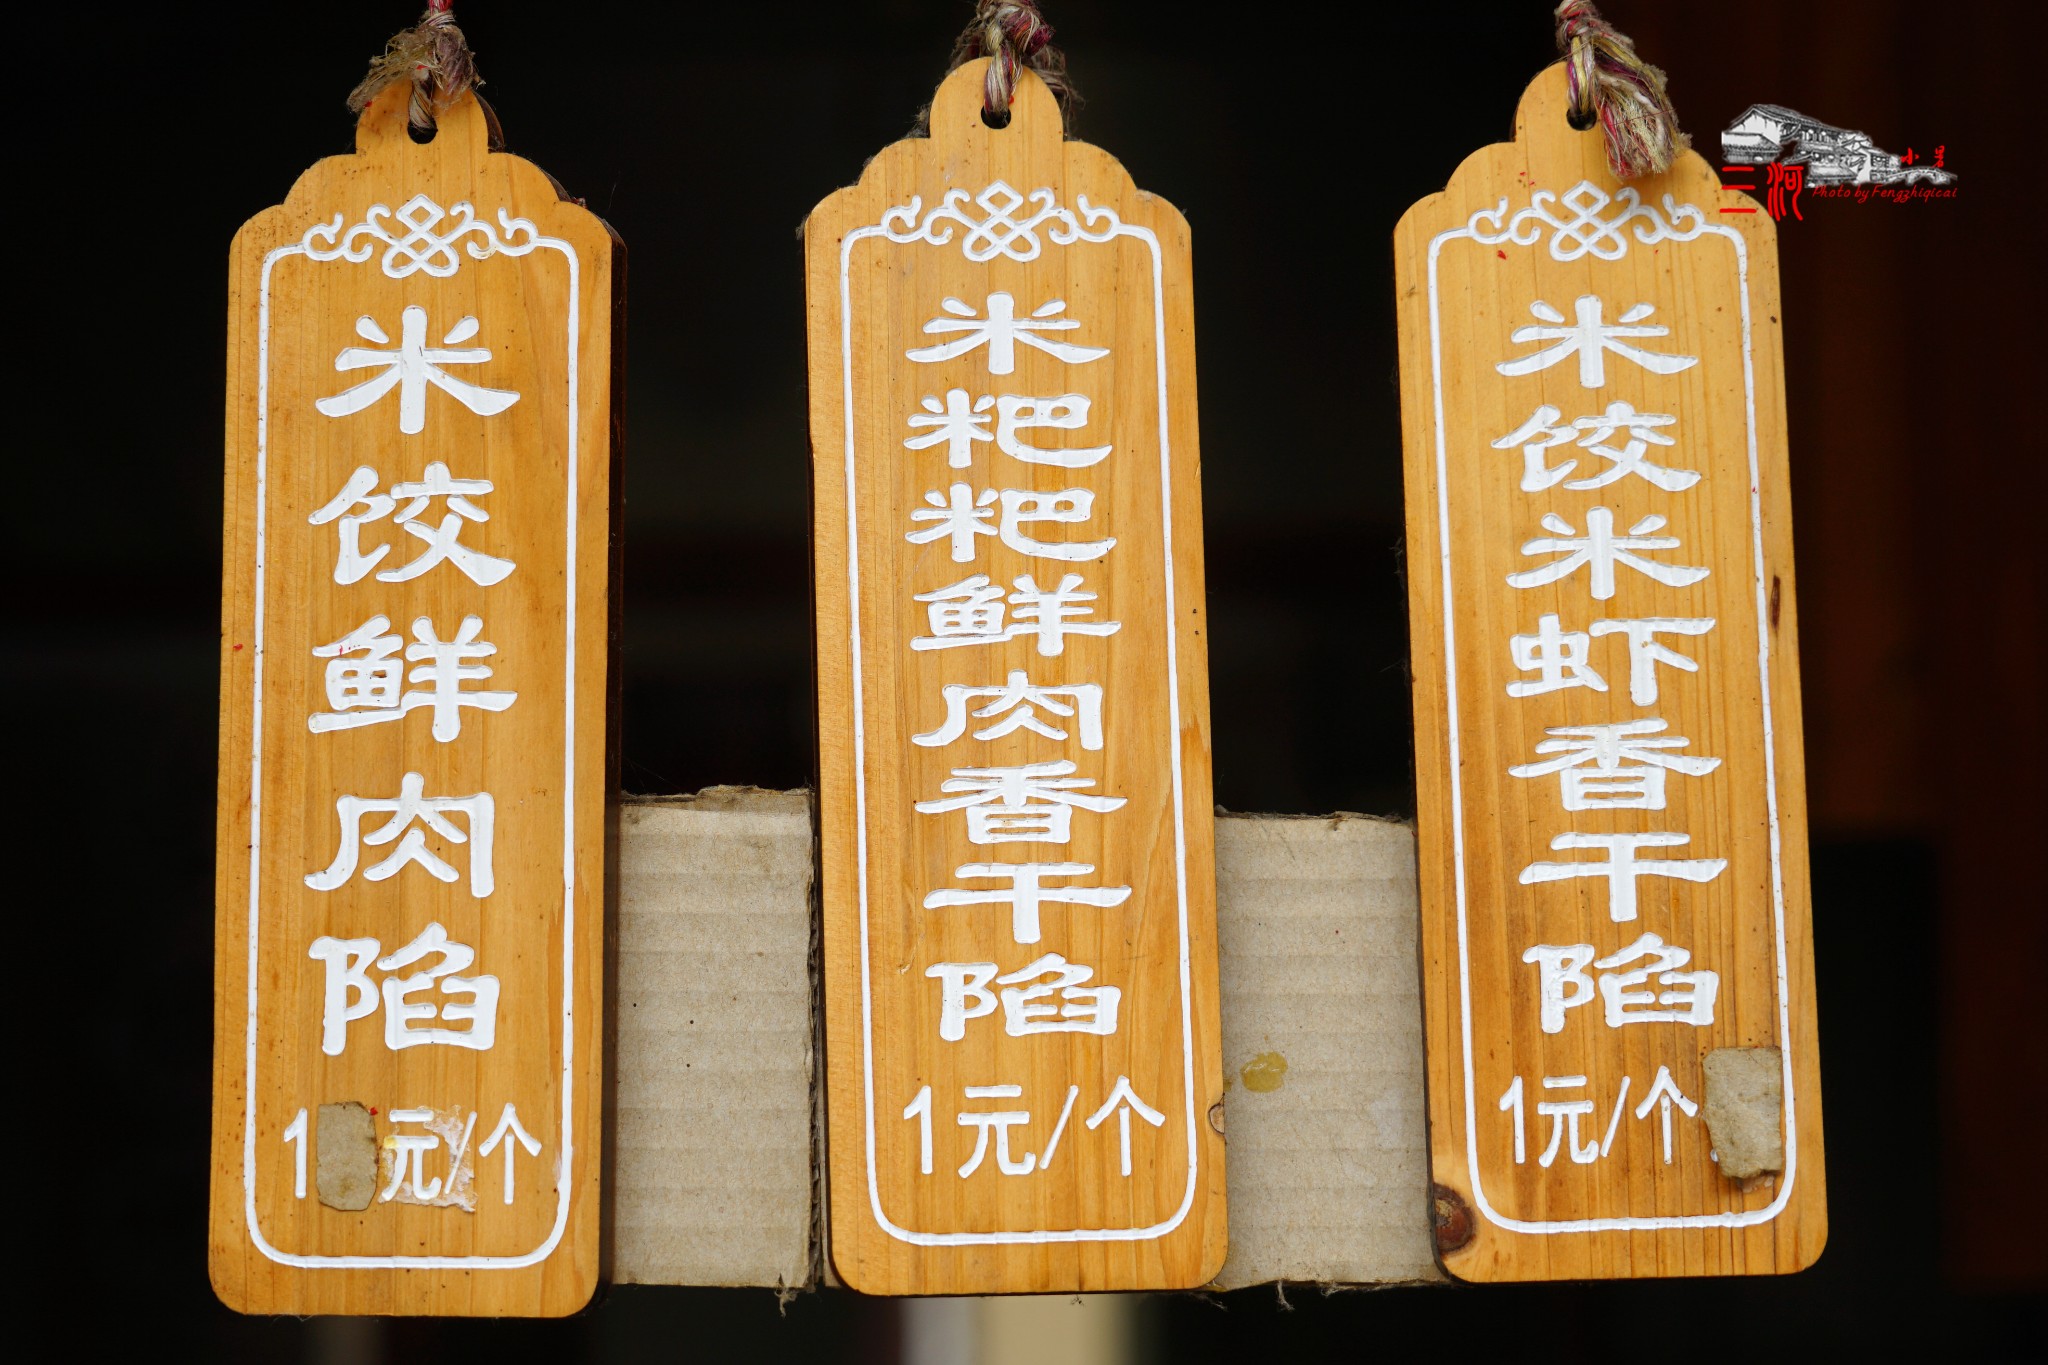 米饺鲜肉陷
1元/个
米粑粑鲜肉香干陷
1元/个
米饺米虾香干陷
1元/个
三河
Photo by Fengzhiqicai